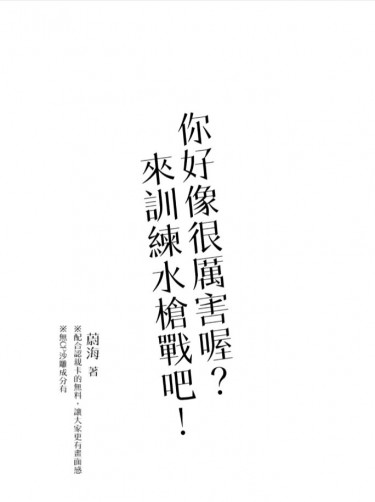 你好像很厲害喔？
來訓練水槍戰吧！
蔚海 著
※配合認親卡的無料，讓大家更有畫面感
※無CP沙雕成分有